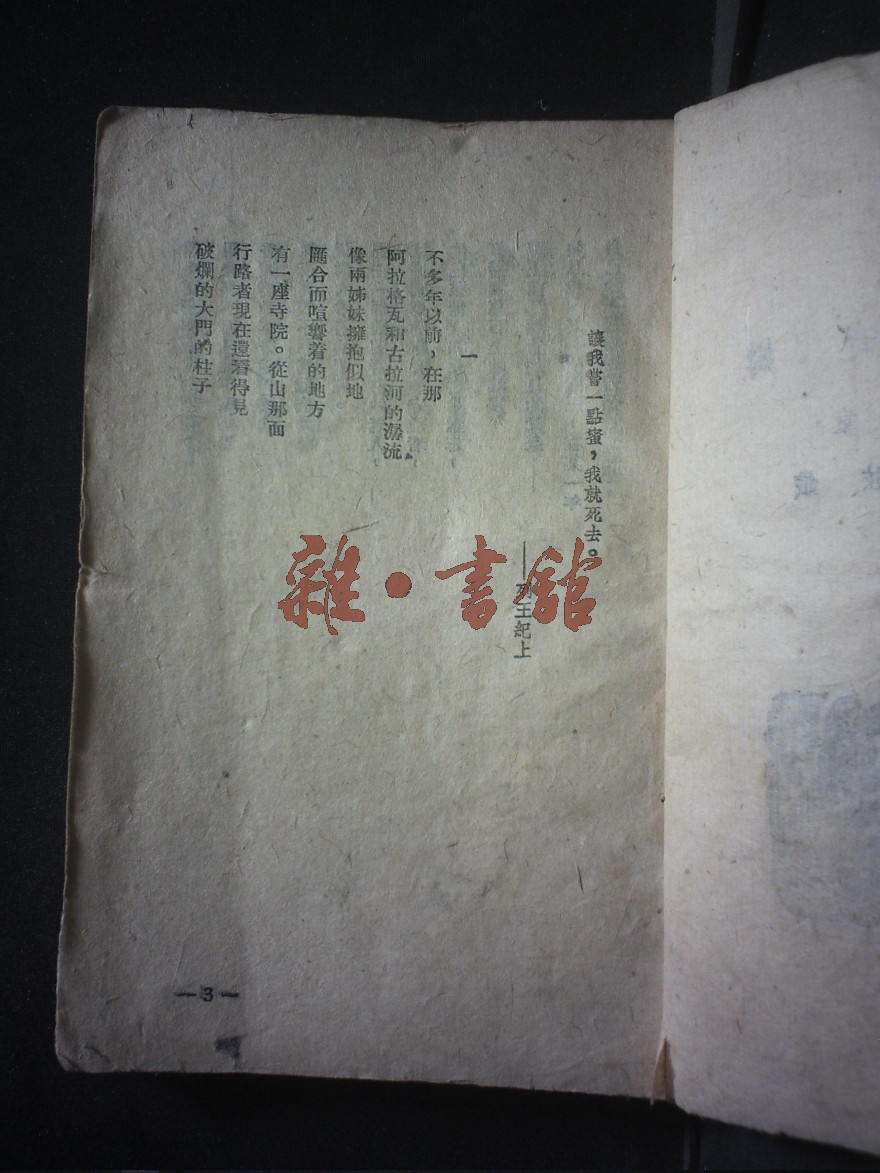 讓我嘗一點蜜，我就死去。
——列王紀上
一
不多年以前，在那
阿拉格瓦和古拉河的潺流
像兩姊妹擁抱似地
匯合而喧響着的地方
有一座寺院。從山那面
行路者現在還看得見
破爛的大門的柱子
—3—
雜·書館